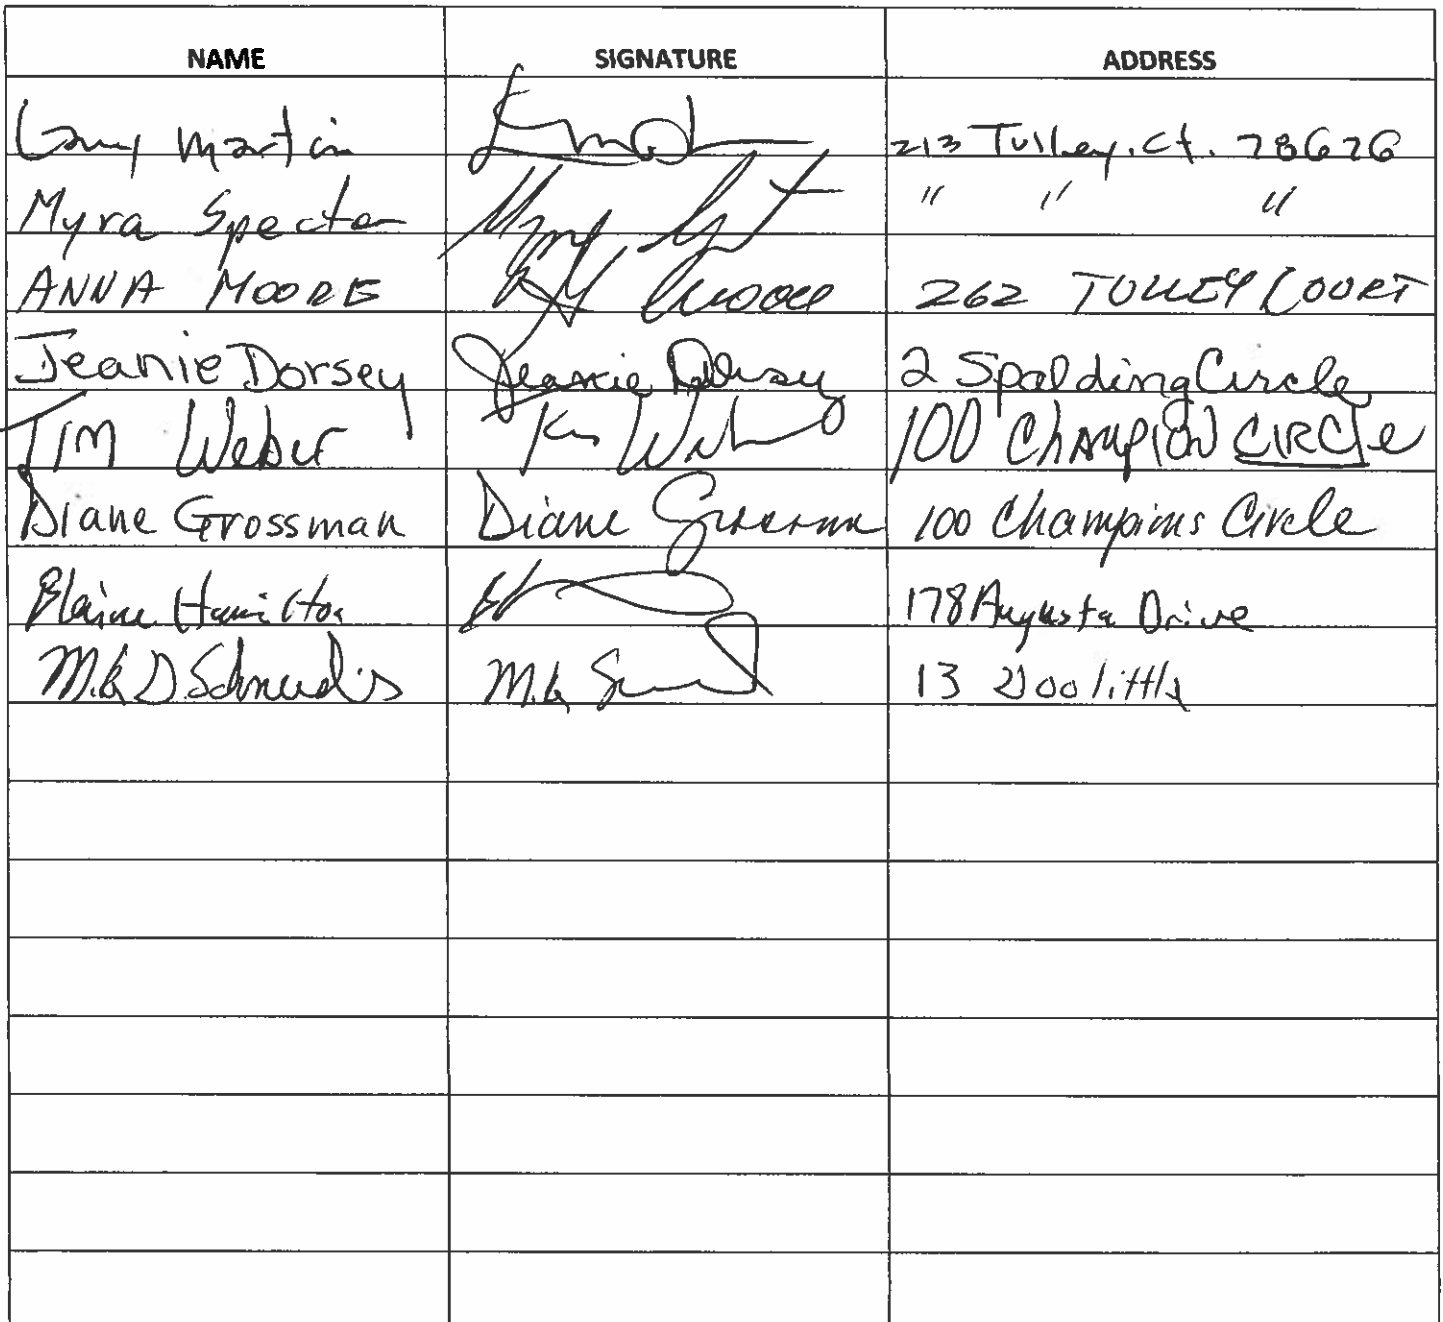 NAME SIGNATURE ADDRESS
Larry Martin 213 Tulley. Ct. 78676
Myra Specter " " "
ANNA MOORE Moore 262 TULLEY COURT
Jeanie Dorsey Jeanie Dorsey 2 Spalding Circle
TIM Weber 100 Champion CIRCle
Diane Grossman Diane Grossman 100 Champions Circle
Blaine Hamilton 178 Augusta Drive
D. 13 Doolittle